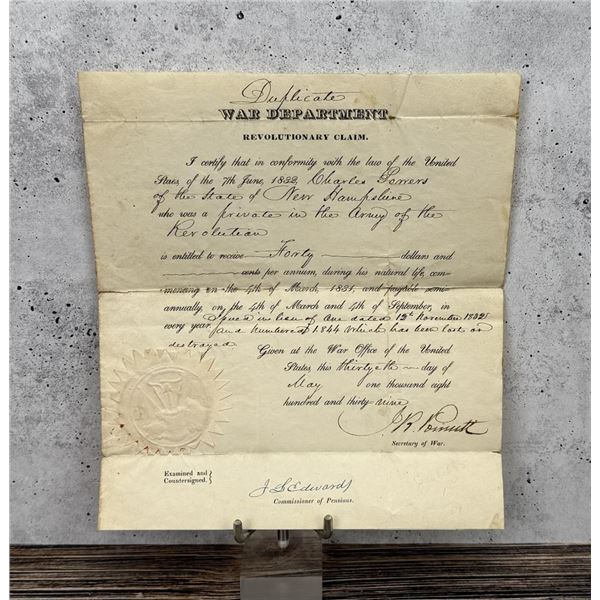 Duplicate
WAR DEPARTMENT.
REVOLUTIONARY CLAIM.
I certify that in conformity with the law of the United
States, of the 7th June, 1832, Charles Powers
of the State of New Hampshire
who was a private in the Army of the
Revolution
is entitled to receive Forty dollars and
cents per annum, during his natural life, com-
mencing on the 4th of March, 1831, and payable semi-
annually, on the 4th of March and 4th of September, in
every year. Issued in lieu of One dated 12th November 1832
and numbered 1.844 which has been lost or
destroyed
Given at the War Office of the United
States, this thirtyeth day of
May one thousand eight
hundred and thirty-nine
J. R. Poinsett
Secretary of War.
Examined and
Countersigned.
J L Edwards
Commissioner of Pensions.